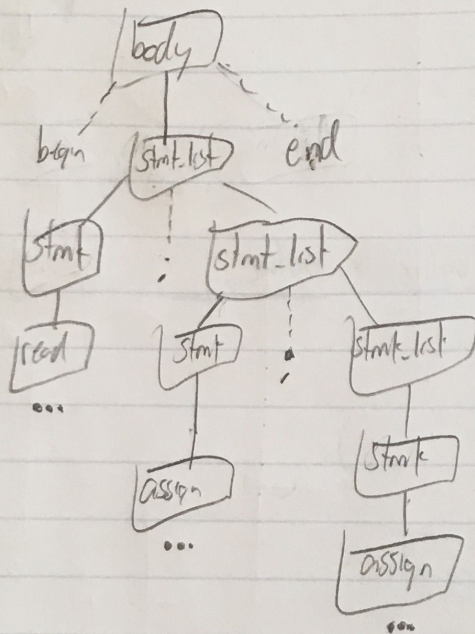 body
begin stmt_list end
stmt ; stmt_list
read stmt ; stmt_list
...
assign stmt
...
assign
...